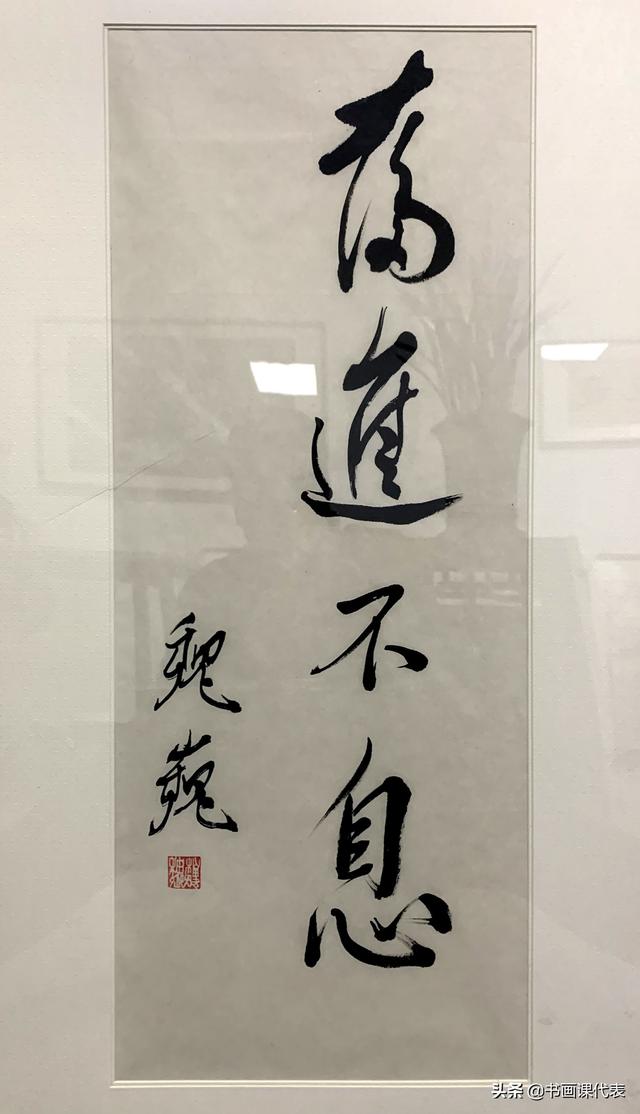 奮進不息
魏巍
头条 @书画课代表